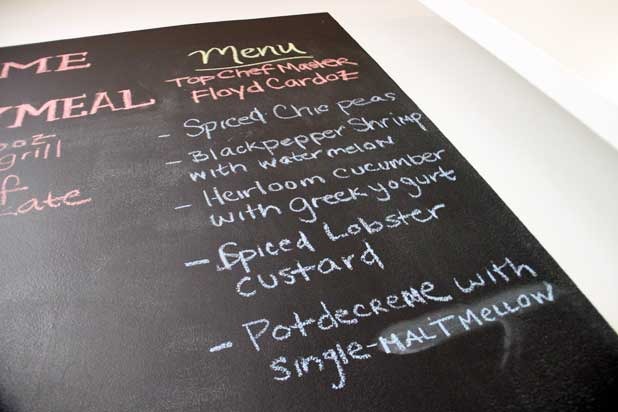 ME
YMEAL
oz
grill
f
late
Menu
Top Chef Master
Floyd Cardoz
- Spiced Chic peas
- Blackpepper Shrimp
with watermelon
- Heirloom cucumber
with greek yogurt
- Spiced Lobster
custard
- Pot de creme with
single-MALTMELLOW